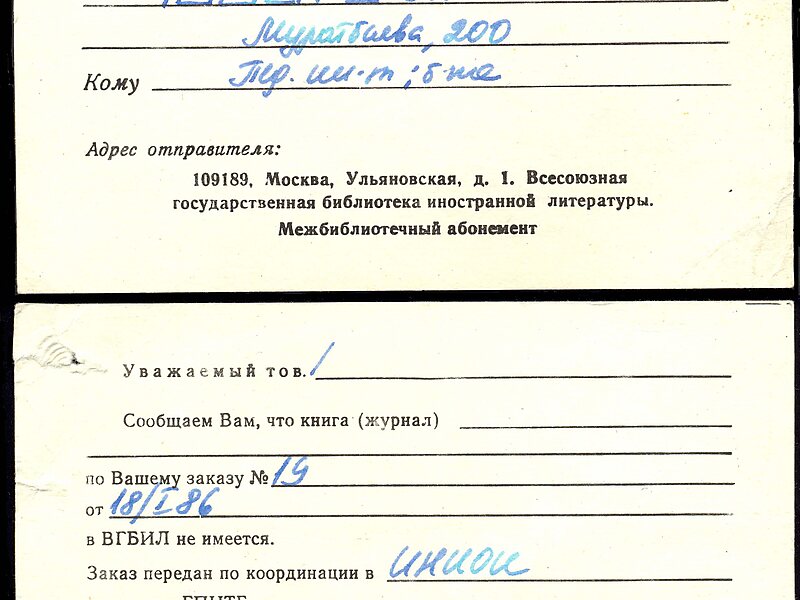 Муратбаева, 200
Кому Пед. ин-т; б-ка
Адрес отправителя:
109189, Москва, Ульяновская, д. 1. Всесоюзная
государственная библиотека иностранной литературы.
Межбиблиотечный абонемент
Уважаемый тов.
Сообщаем Вам, что книга (журнал)
по Вашему заказу № 19
от 18/I 86
в ВГБИЛ не имеется.
Заказ передан по координации в ИНИОН